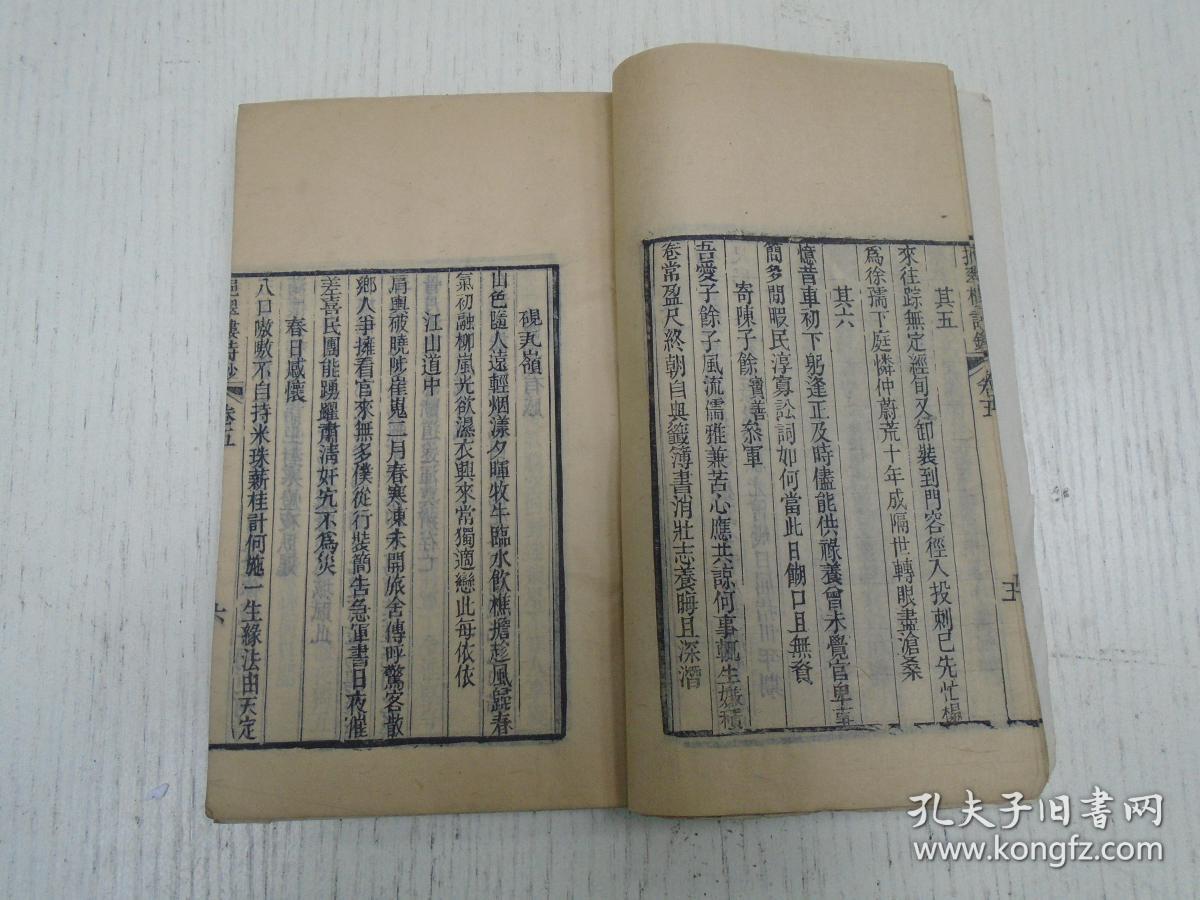 其五
來往踪無定經旬又卸裝到門容徑入投刺已先忙榻
爲徐孺下庭憐仲蔚荒十年成隔世轉眼盡滄桑
其六
憶昔車初下躬逢正及時儘能供祿養曾未覺官卑事
簡多閒暇民淳寡訟詞如何當此日餬口且無資
寄陳子餘寶善叅軍
吾愛子餘子風流儒雅兼苦心應共諒何事輒生嫌積
卷常盈尺終朝自典籤簿書消壯志養晦且深潛
卷五
五
硯瓦嶺
山色隨人遠輕烟漾夕暉牧牛臨水飲樵擔趁風歸春
氣初融柳嵐光欲濕衣興來常獨適戀此每依依
江山道中
肩輿破曉陟崔嵬二月春寒凍未開旅舍傳呼驚客散
鄉人爭擁看官來無多僕從行裝簡吿急軍書日夜催
差喜民團能踴躍肅淸奸宄不爲災
春日感懷
八口嗷嗷不自持米珠薪桂計何施一生緣法由天定
樓詩鈔
卷五
六
孔夫子旧书网
www.kongfz.com